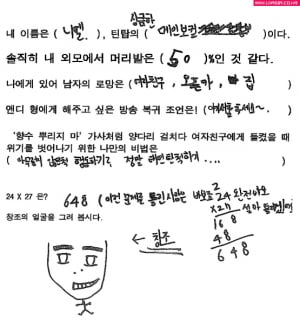 www.LOVEAN.co.kr
상큼한
내 이름은 ( 니엘, ), 틴탑의 ( 메인보컬 )이다.
솔직히 내 외모에서 머리발은 ( 50 )%인 것 같다.
나에게 있어 남자의 로망은 ( 여자친구, 오픈카, 집 )
앤디 형에게 해주고 싶은 방송 복귀 조언은! (
'향수 뿌리지 마' 가사처럼 양다리 걸치다 여자친구에게 들켰을 때
위기를 벗어나기 위한 나만의 비법은
( 아무렇지 않은척 행동하기? 정말 태연한척하게 .... )
24 X 27 은? 648 ( 이런 문제를 틀린 사람은 바보 완전 바보
2
24
x27
168
48
648
창조의 얼굴을 그려 봅시다.
← 창조